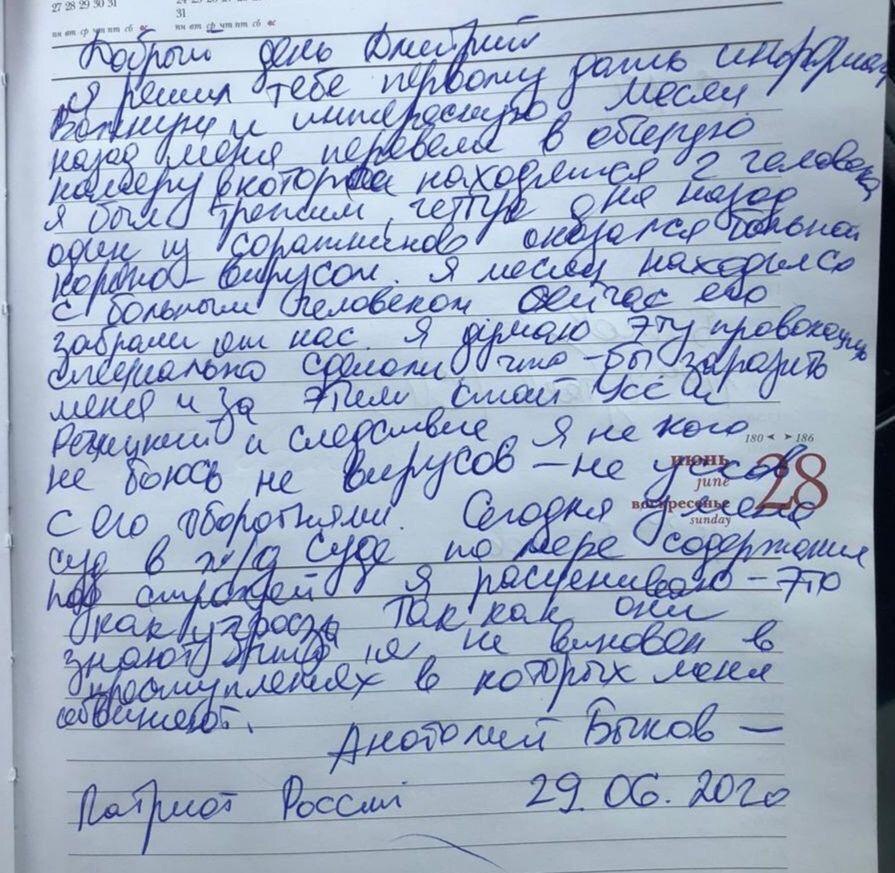 27 28 29 30 31
31
пн вт ср чт пт сб вс
пн вт ср чт пт сб вс
Добрый день Дмитрий
я решил тебе первому дать информац
важную и интересную месяц
назад меня перевели в общую
камеру в которой находятся 2 человека
я был третьим, четыре дня назад
один из сокамерников оказался больной
короно-вирусом. Я месяц находился
с больным человеком сейчас его
забрали от нас. Я думаю эту провокацию
специально сделали что-бы заразить
меня и за этим стоит Усс и
и следствие я не кого
180 ◄ ► 186
не боюсь не вирусов – не уссов
июнь
june
28
воскресенье
sunday
с его оборотнями. Сегодня у меня
суд в ж/д суде по мере содержания
под стражей я расцениваю – это
как угроза так как они
знают что я не виновен в
преступлениях в которых меня
обвиняют.
Анатолий Быков –
Патриот России 29. 06. 2020